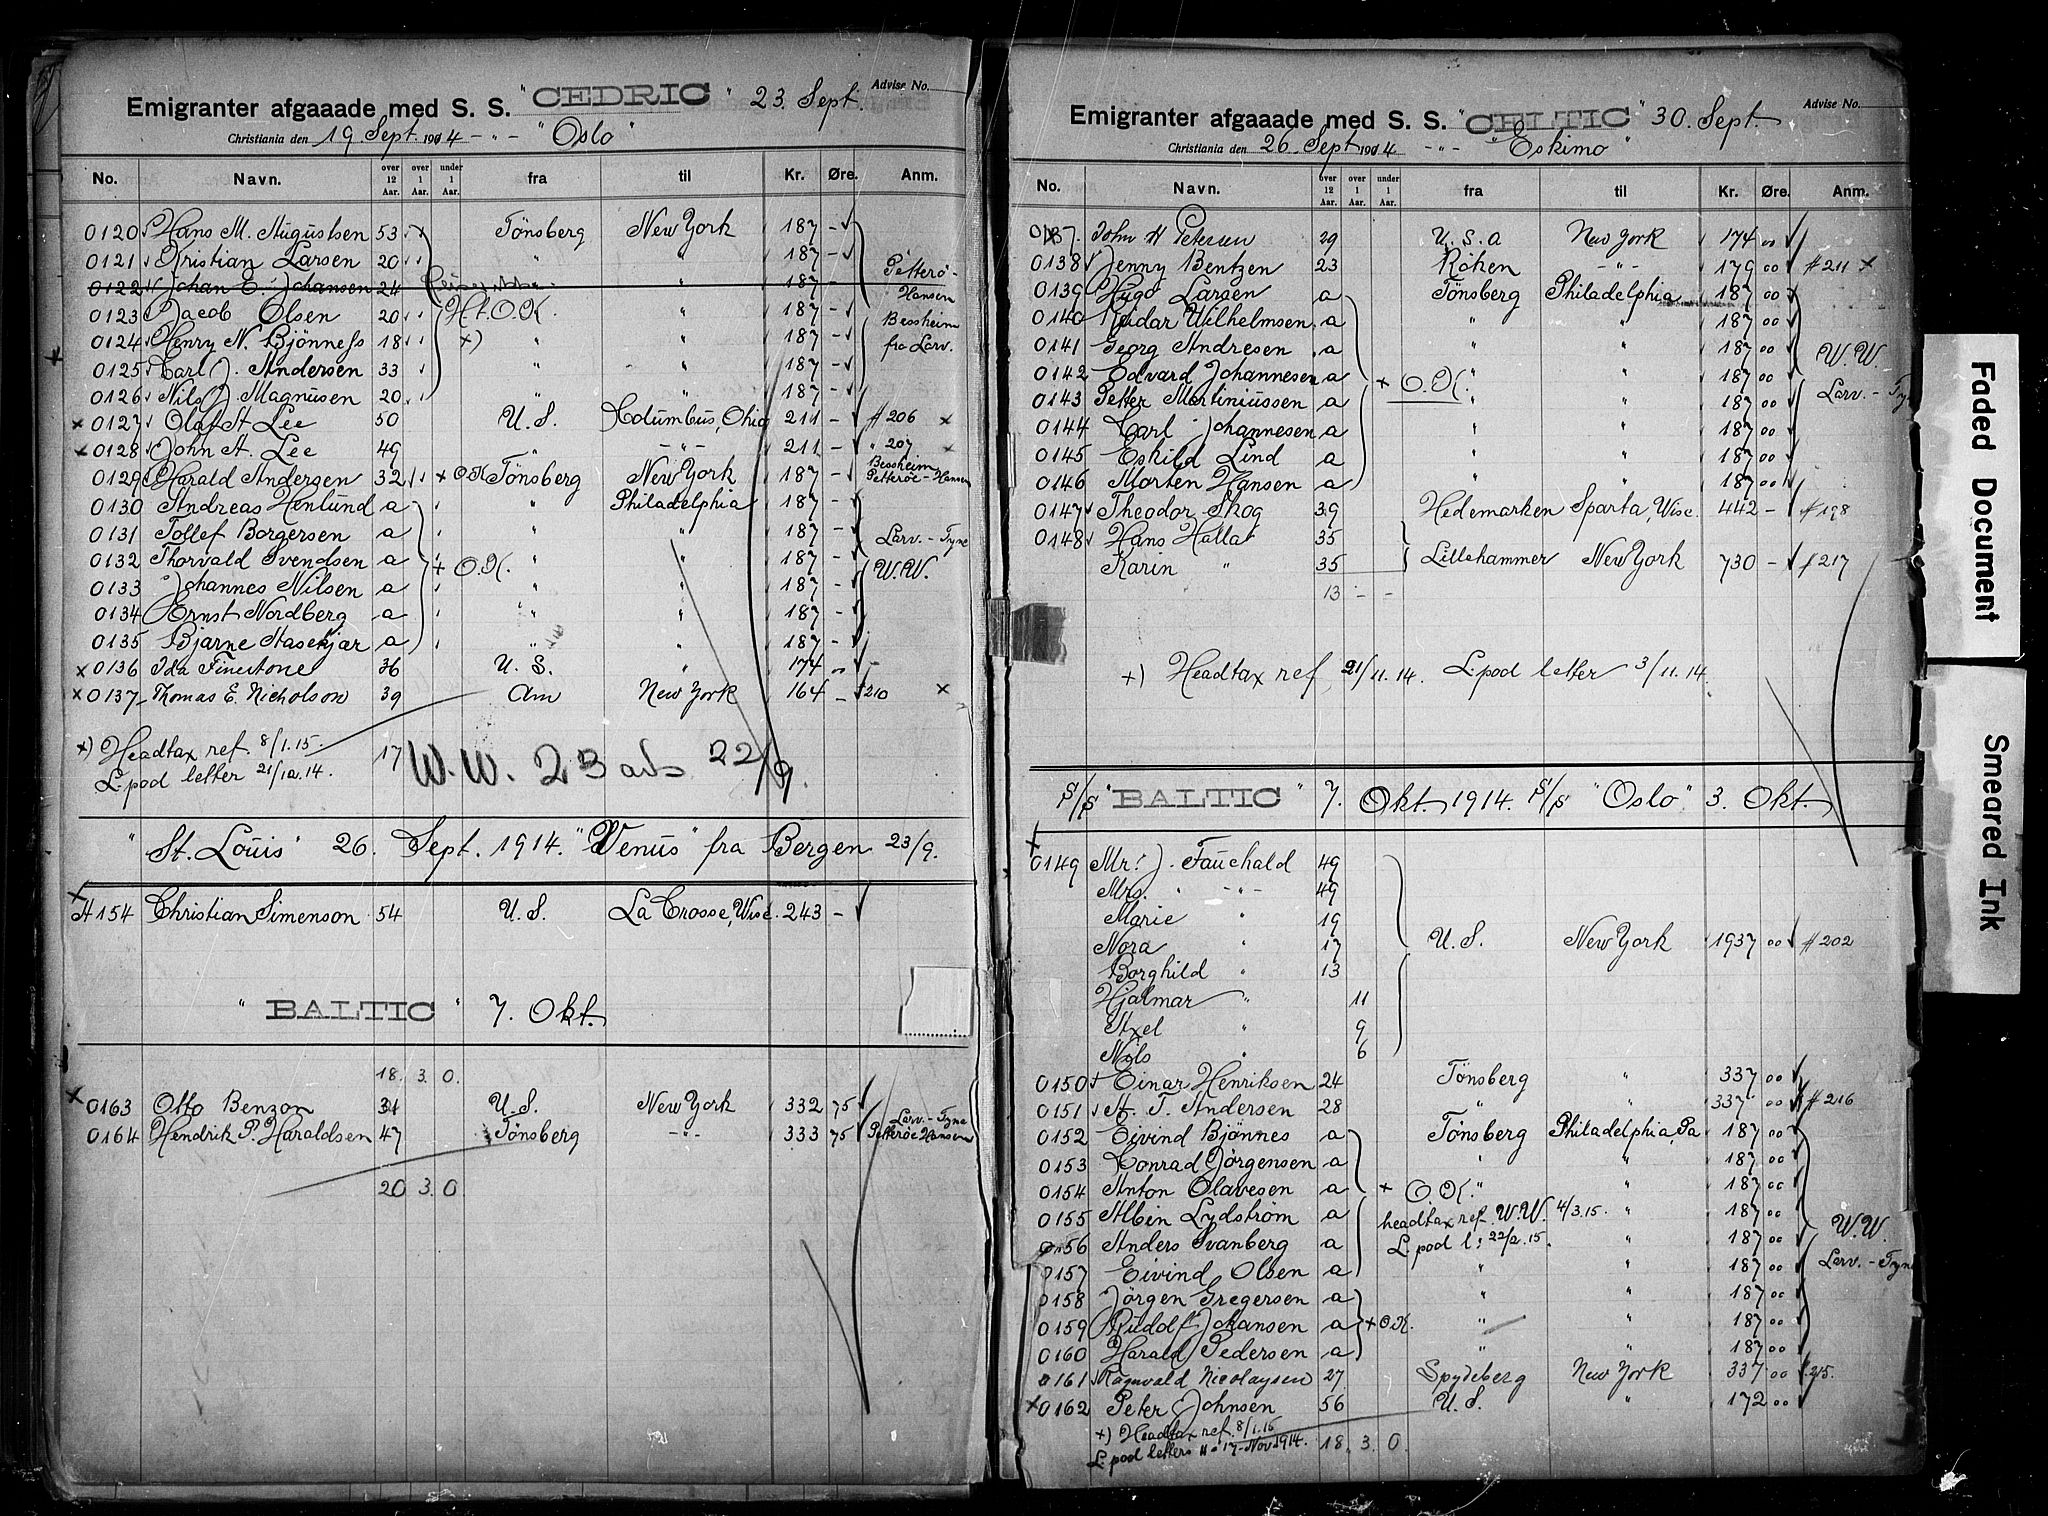 Advise No.
Emigranter afgaaade med S. S. "CEDRIC" 23. Sept.
Christiania den 19. Sept. 1914 -"- "Oslo"
No. Navn. over 12 Aar. over 1 Aar. under 1 Aar. fra til Kr. Øre. Anm.
0120 Hans M. Augustsen 53 Tönsberg New York 187 -
0121 Kristian Larsen 20 " " 187 -
0122 Johan E. Johansen 24 " 187 - Petterö-
0123 Jacob Olsen 20 H.O.K. " 187 - Hansen
0124 Henry N. Bjönness 18 x) " " 187 - Bessheim
0125 Carl J. Andersen 33 " " 187 - fra Larv.
0126 Nils J. Magnusen 20 " " 187 -
x 0127 Olaf A Lee 50 U.S. Columbus, Ohio 211 - # 206 x
x 0128 John A. Lee 49 " -"- 211 - " 207 x
0129 Harald Andersen 32 x OK Tönsberg New York 187 - Bessheim Petteröe-Hansen
0130 Andreas Henlund a " Philadelphia 187 -
0131 Tollef Borgersen a " " 187 - Larv.-Tyne
0132 Thorvald Svendsen a + O.K. " " 187 - W.W.
0133 Johannes Nilsen a " " 187 -
0134 Ernst Nordberg a " " 187 -
0135 Bjarne Aasekjær a " " 187 -
x 0136 Ida Finestone 36 U.S. " 174 -
x 0137 Thomas E. Nicholson 39 Am New York 164 - 210 x
x) Headtax ref. 8/1.15. 17 W.W. 23 22/9.
L.pod letter 21/12.14.
"St. Louis" 26. Sept. 1914. "Venus" fra Bergen 23/9.
x
A154 Christian Simenson 54 U.S. La Crosse, Wisc. 243 -
"BALTIC" 7. Okt.
18. 3. 0.
x 0163 Otto Benzon 31 U.S. New York 332 75
0164 Hendrik P. Haraldsen 47 Tönsberg -"- 333 75 Larv.-Tyne Petteröe Hansen
20 3. 0.
Advise No.
Emigranter afgaaade med S. S. "CELTIC" 30. Sept.
Christiania den 26. Sept 1914 -"- "Eskimo"
No. Navn. over 12 Aar. over 1 Aar. under 1 Aar. fra til Kr. Øre. Anm.
0137. John H Petersen 29 U.S.A New York 174 00
0138 Jenny Bentzen 23 Röken -"- 179 00 # 211 x
0139 Hugo Larsen a Tönsberg Philadelphia 187 00
0140 Reidar Wilhelmsen a " " 187 00
0141 Georg Andresen a " " 187 00 W.W.
0142 Edvard Johannesen a + O.K. " " 187 00 Larv.-Tyne
0143 Petter Martiniussen a " " 187 00
0144 Carl Johannesen a " " 187 00
0145 Eskild Lind a " " 187 00
0146 Morten Hansen a " " 187 00
0147 Theodor Skog 39 Hedemarken Sparta, Wisc. 442 - # 198
0148 Hans Hallat 35
Karin " 35 Lillehammer New York 730 - # 217
13 - -
+) Headtax ref. 21/11.14. L.pod letter 3/11.14.
S/S "BALTIC" 7. Okt. 1914. S/S "Oslo" 3. Okt.
x
0149 Mr. J. Fauchald 49
Mrs. " -"- 49
Marie " 19
Nora " 17 U.S. New York 1937 00 # 202
Borghild " 13
Hjalmar " 11
Axel " 9
Nils " 6
0150 Einar Henriksen 24 Tönsberg " 337 00
0151 A. T. Andersen 28 " " 337 00 # 216
0152 Eivind Bjönnes a Tönsberg Philadelphia, Pa 187 00
0153 Konrad Jörgensen a " " 187 00
0154 Anton Olavesen a + O.K. " " 187 00
0155 Albin Lydström a headtax ref. W.W. 4/3.15. " 187 00
0156 Anders Svanberg a L.pod l: 22/2.15. " 187 00 W.W.
0157 Eivind Olsen a " " 187 00 Larv.-Tyne
0158 Jörgen Gregersen a " " 187 00
0159 Rudolf Johansen a + O.K. " " 187 00
0160 Harald Pedersen a " " 187 00
0161 Ragnvald Nicolaysen 27 Spydeberg New York 337 00 # 215.
x 0162 Peter Johnsen 56 U.S. " 172 00
+) Headtax ref. 8/1.15
L.pod letters 17-Nov 1914. 18. 3. 0.
Faded Document
Smeared Ink